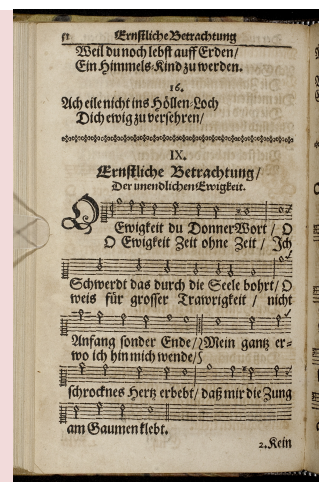 52 Ernstliche Betrachtung
Weil du noch lebst auff Erden/
Ein Himmels-Kind zu werden.
16.
Ach eile nicht ins Höllen-Loch
Dich ewig zu versehren/
IX.
Ernstliche Betrachtung/
Der unendlichen Ewigkeit.
O Ewigkeit du DonnerWort / O
O Ewigkeit Zeit ohne Zeit / Jch
Schwerdt das durch die Seele bohrt/ O
weis für grosser Trawrigkeit / nicht
Anfang sonder Ende/ Mein gantz er=
wo ich hin mich wende/
schrocknes Hertz erbebt/ daß mir die Zung
am Gaumen klebt.
2. Kein